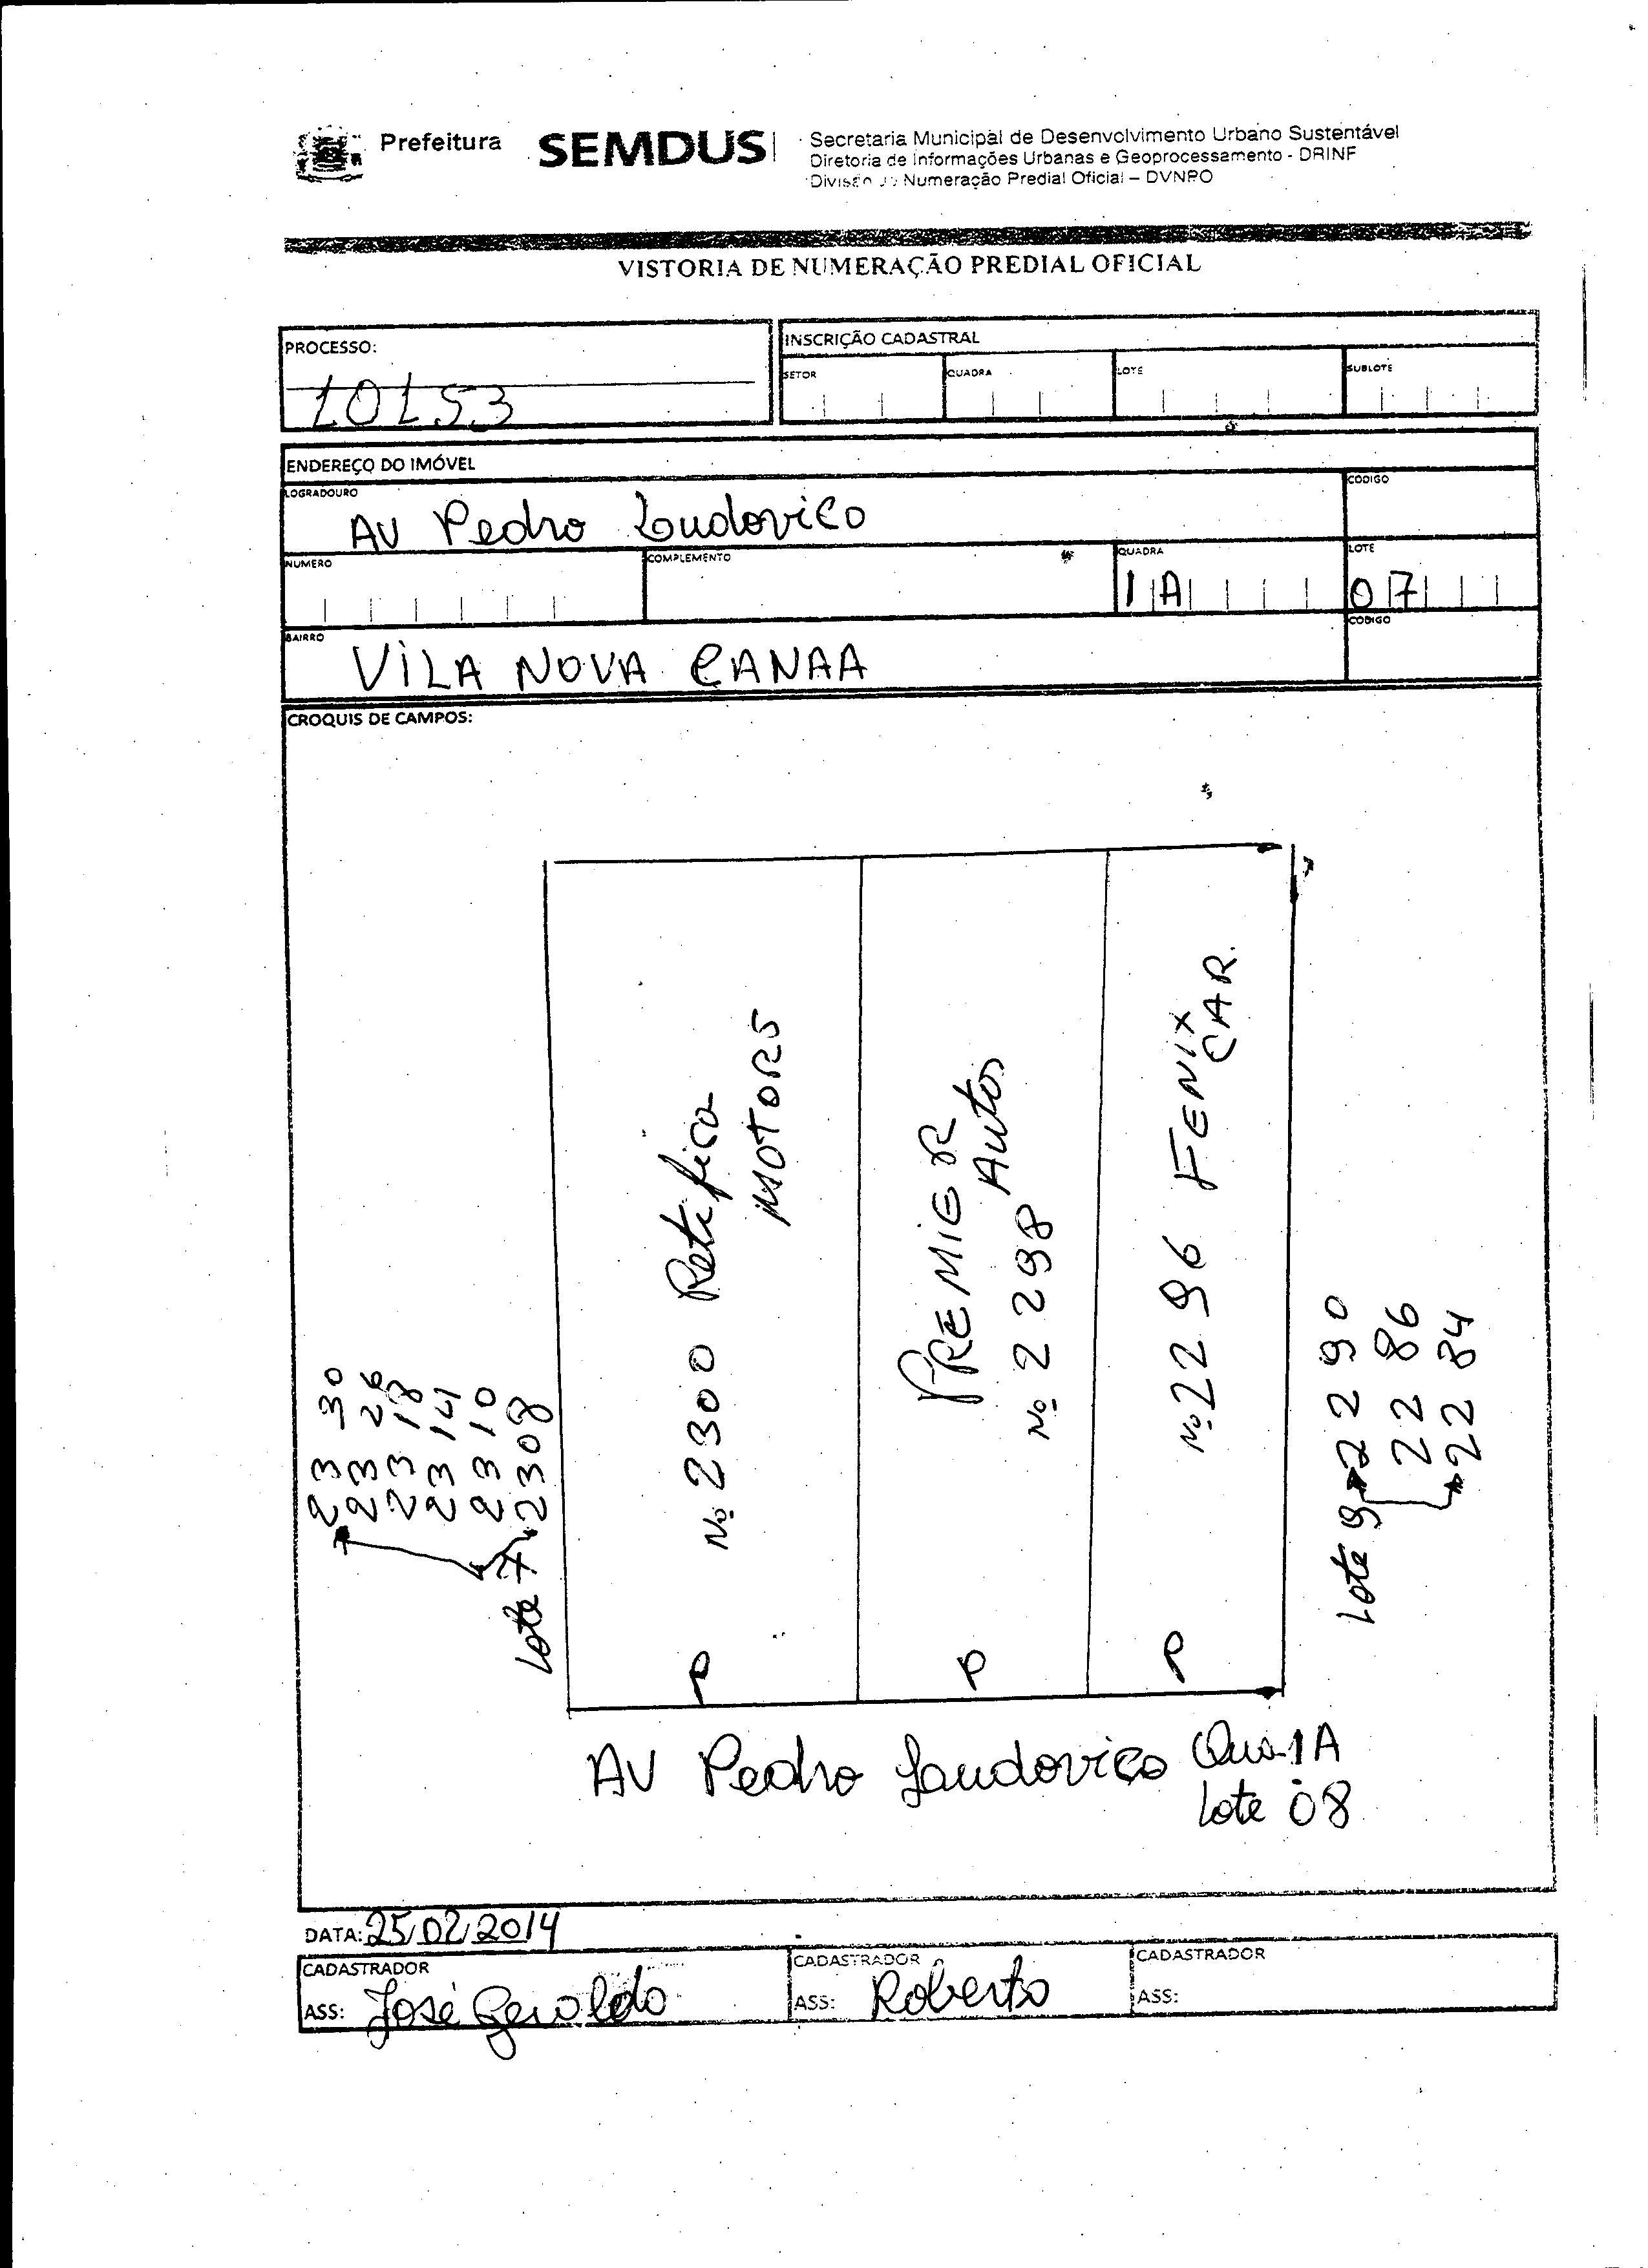 Prefeitura SEMDUS
Secretaria Municipal de Desenvolvimento Urbano Sustentável
Diretoria de Informações Urbanas e Geoprocessamento - DRINF
Divisão de Numeração Predial Oficial – DVNPO
VISTORIA DE NUMERAÇÃO PREDIAL OFICIAL
PROCESSO:
10153
INSCRIÇÃO CADASTRAL
SETOR QUADRA LOTE SUBLOTE
ENDEREÇO DO IMÓVEL
LOGRADOURO CODIGO
AV Pedro Ludovico
NUMERO COMPLEMENTO QUADRA LOTE
1A 07
BAIRRO CODIGO
VILA NOVA CANAA
CROQUIS DE CAMPOS:
2330
2326
2318
2314
2310
Lote 7 2308
Nº 2300 Retifica
MOTORS
P
PREMIER
Autos
Nº 2298
P
Nº 2296 FENIX
CAR.
P
Lote 9 2290
2286
2284
AV Pedro Laudovico Qua-1A
Lote 08
DATA: 25/02/2014
CADASTRADOR CADASTRADOR CADASTRADOR
ASS: José Geraldo ASS: Roberto ASS: